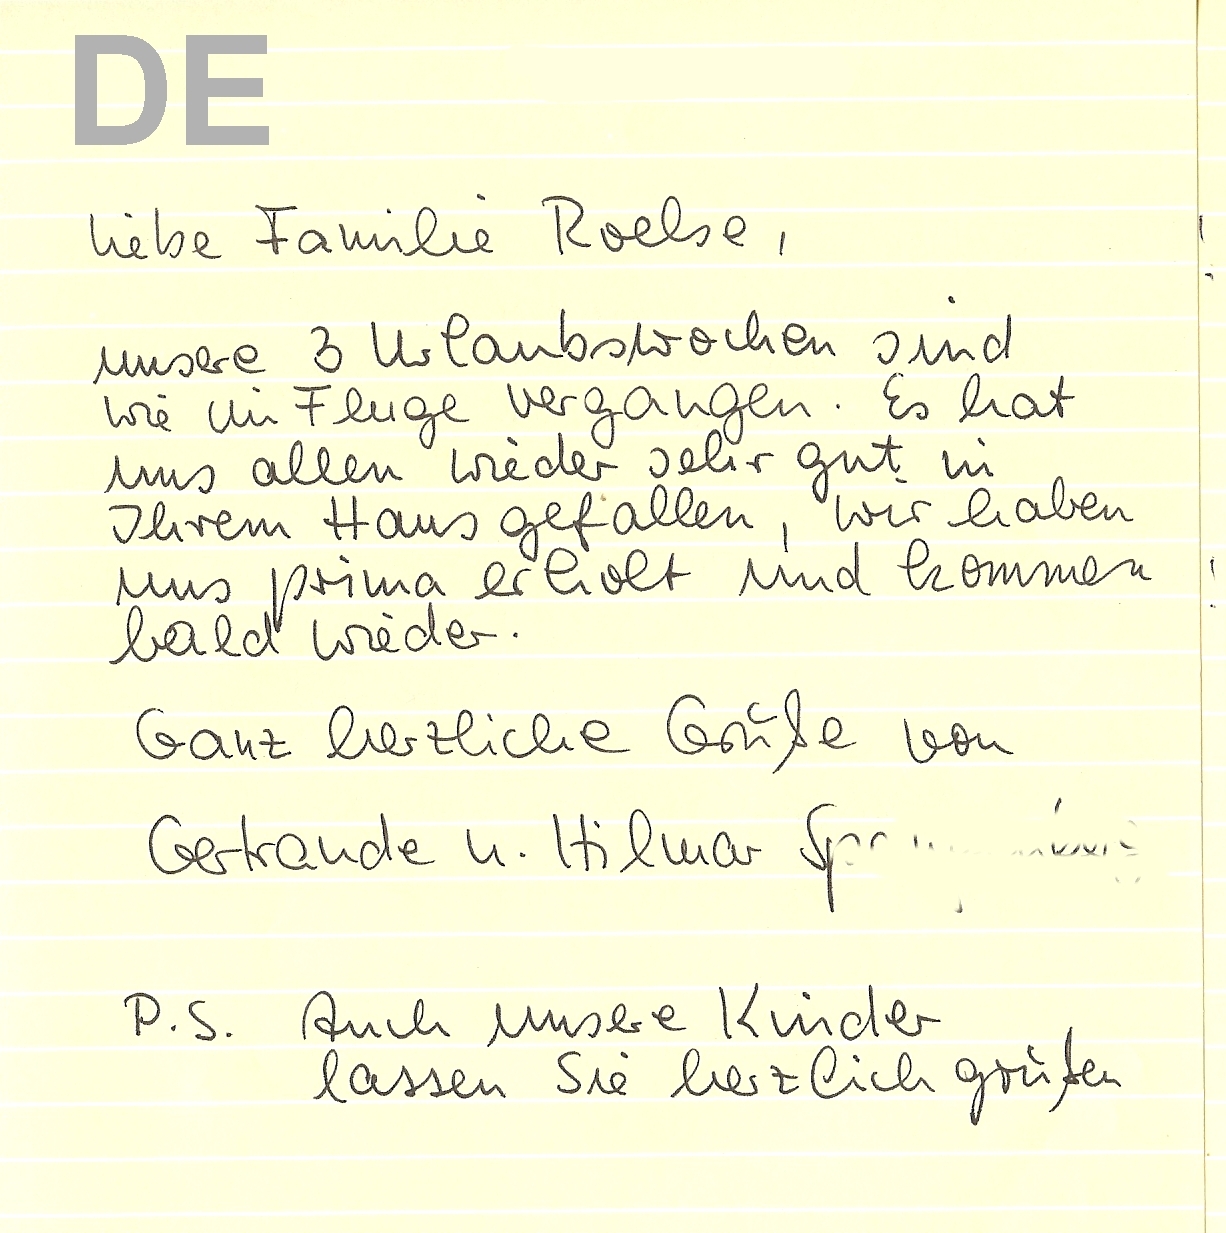 DE
Liebe Familie Roelse,
unsere 3 Urlaubswochen sind
wie im Fluge vergangen. Es hat
uns allen wieder sehr gut in
Ihrem Haus gefallen, wir haben
uns prima erholt und kommen
bald wieder.
Ganz herzliche Grüße von
Gertraude u. Hilmar
P.S. Auch unsere Kinder
lassen Sie herzlich grüßen